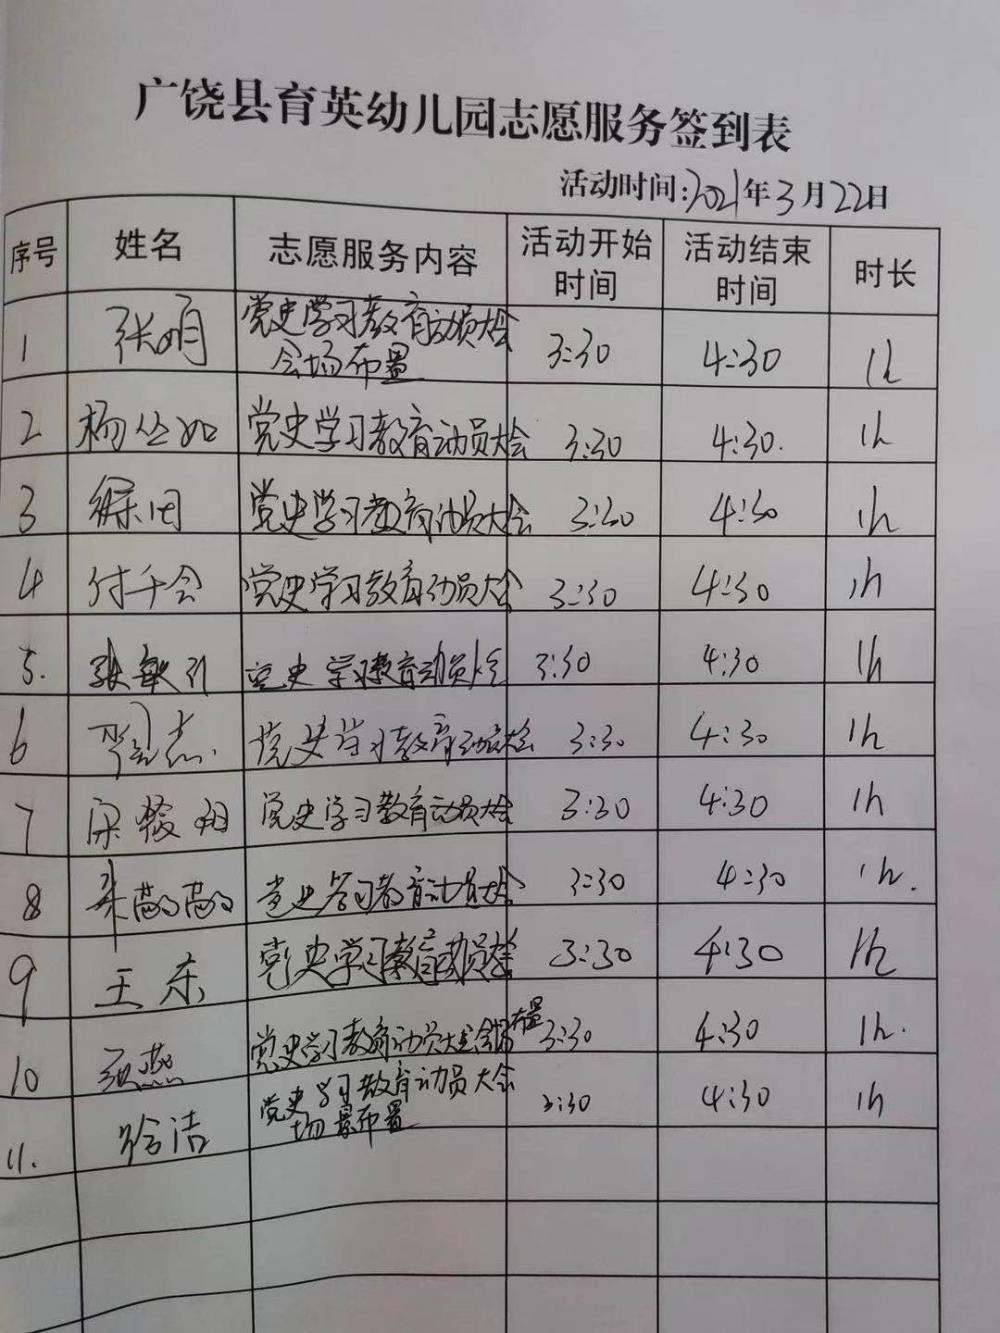 广饶县育英幼儿园志愿服务签到表
活动时间:2021年3月22日
序号 姓名 志愿服务内容 活动开始时间 活动结束时间 时长
1 张明 党史学习教育动员大会会场布置 3:30 4:30 1h
2 杨丛如 党史学习教育动员大会 3:30 4:30. 1h
3 党史学习教育动员大会 3:30 4:30 1h
4 付千会 党史学习教育动员大会 3:30 4:30 1h
5. 张敏 党史学习教育动员大会 3:30 4:30 1h
6 党史学习教育动员大会 3:30 4:30 1h
7 党史学习教育动员大会 3:30 4:30 1h
8 党史学习教育动员大会 3:30 4:30 1h.
9 王东 党史学习教育动员大会 3:30 4:30 1h
10 燕 党史学习教育动员大会会场布置 3:30 4:30 1h.
11. 徐洁 党史学习教育动员大会场景布置 3:30 4:30 1h